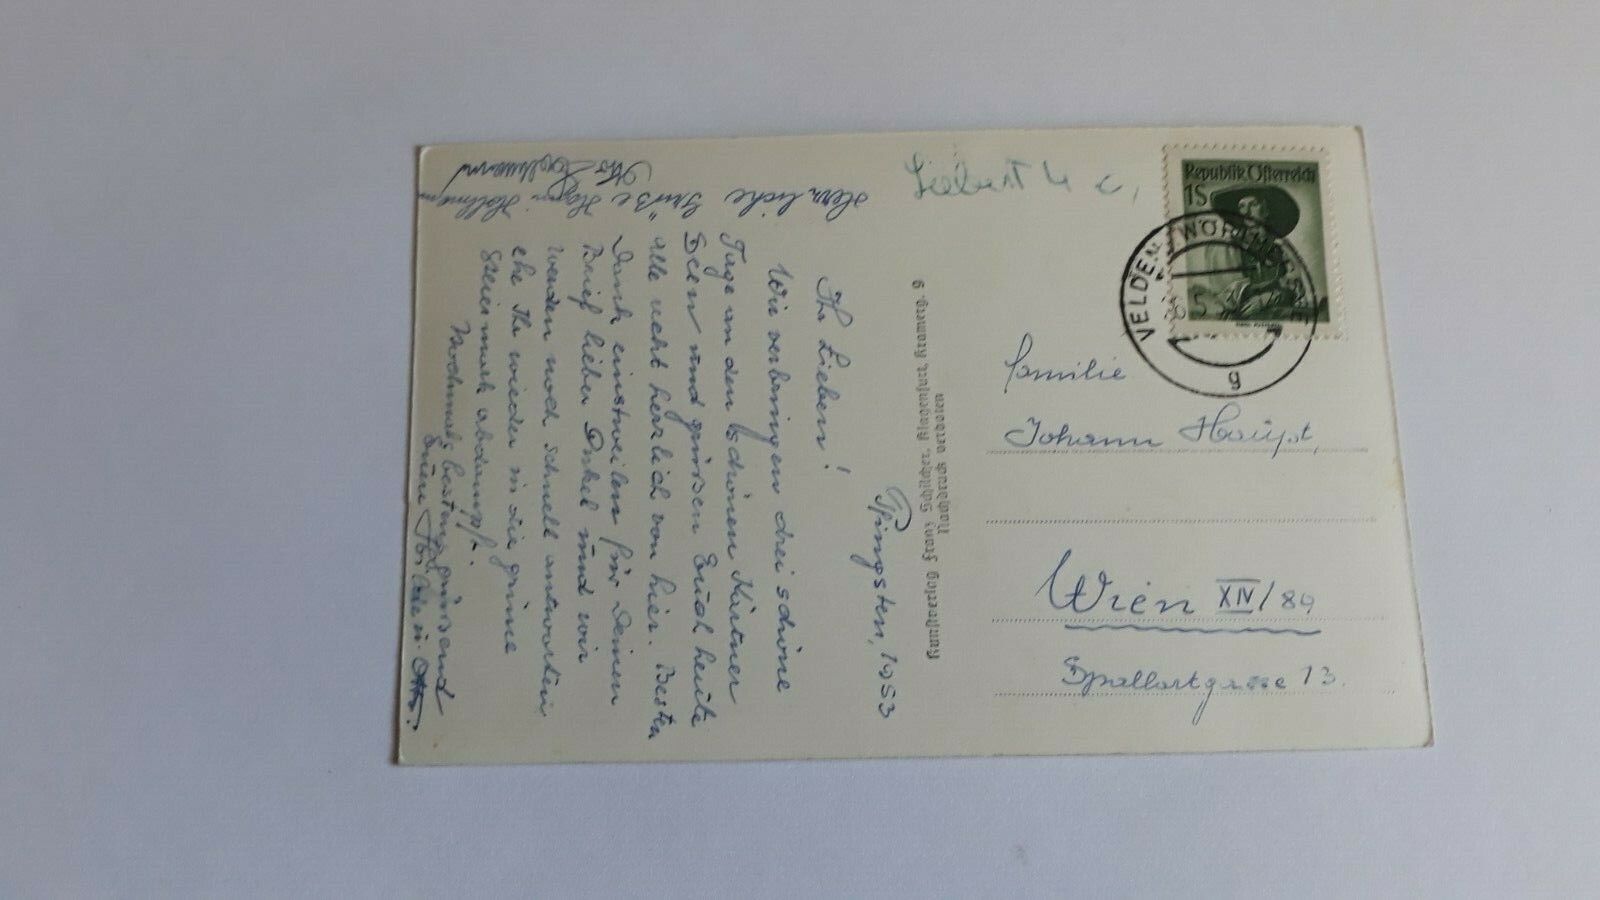 Pfingsten, 1953
Ihr Lieben!
Wir verbringen drei schöne
Tage an den schönen Kärtner
Seen und grüssen Euch heute
alle recht herzlich von hier. Besten
Dank einstweilen für Deinen
Brief lieber Onkel und wir
werden noch schnell antworten
ehe Ihr wieder in die grüne
Steiermark abdampft.
Nochmals bestens grüssend
Otto.
Herzliche Grüße
Kunstverlag Franz Schilcher, Klagenfurt, Kramerg. 9
Nachdruck verboten
Republik Österreich
1S
VELDEN WÖRTHERSEE
5
g
Familie
Johann Haupt,
Wien XIV/89
Spallartgasse 13.